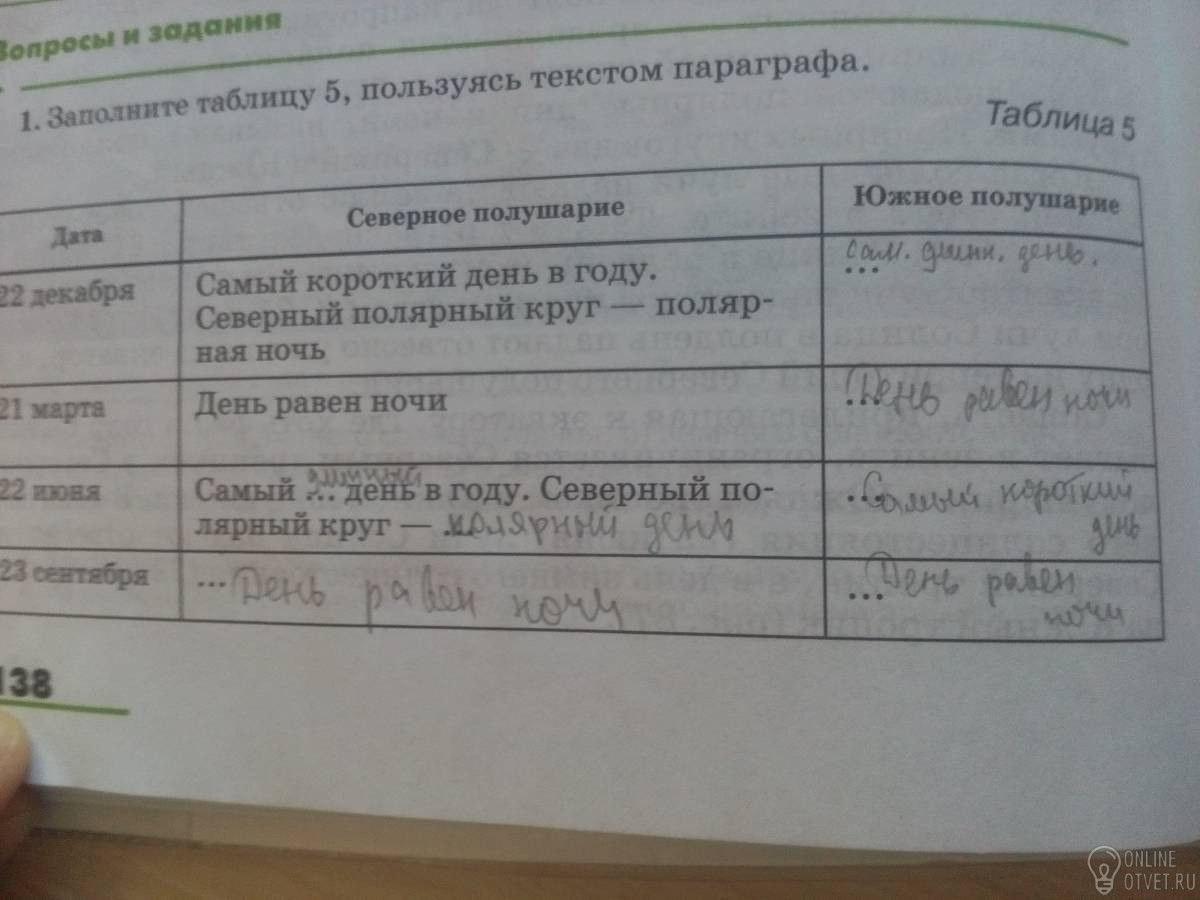 Вопросы и задания
1. Заполните таблицу 5, пользуясь текстом параграфа.
Таблица 5
Дата
Северное полушарие
Южное полушарие
22 декабря
Самый короткий день в году.
Северный полярный круг — поляр-
ная ночь
сам. длин. день.
...
21 марта
День равен ночи
День равен ночи
22 июня
длинный
Самый ... день в году. Северный по-
лярный круг — полярный день
...Самый короткий
день
23 сентября
...День равен ночи
...День равен
ночи
138
ONLINE
OTVET.RU